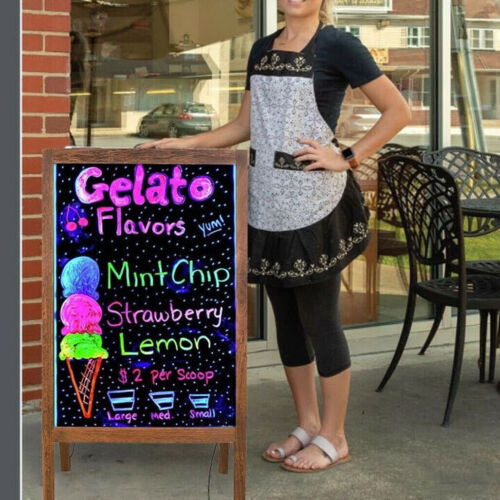 Gelato
Flavors
yum!
Mint Chip
Strawberry
Lemon
$2 per Scoop
Large Med. Small